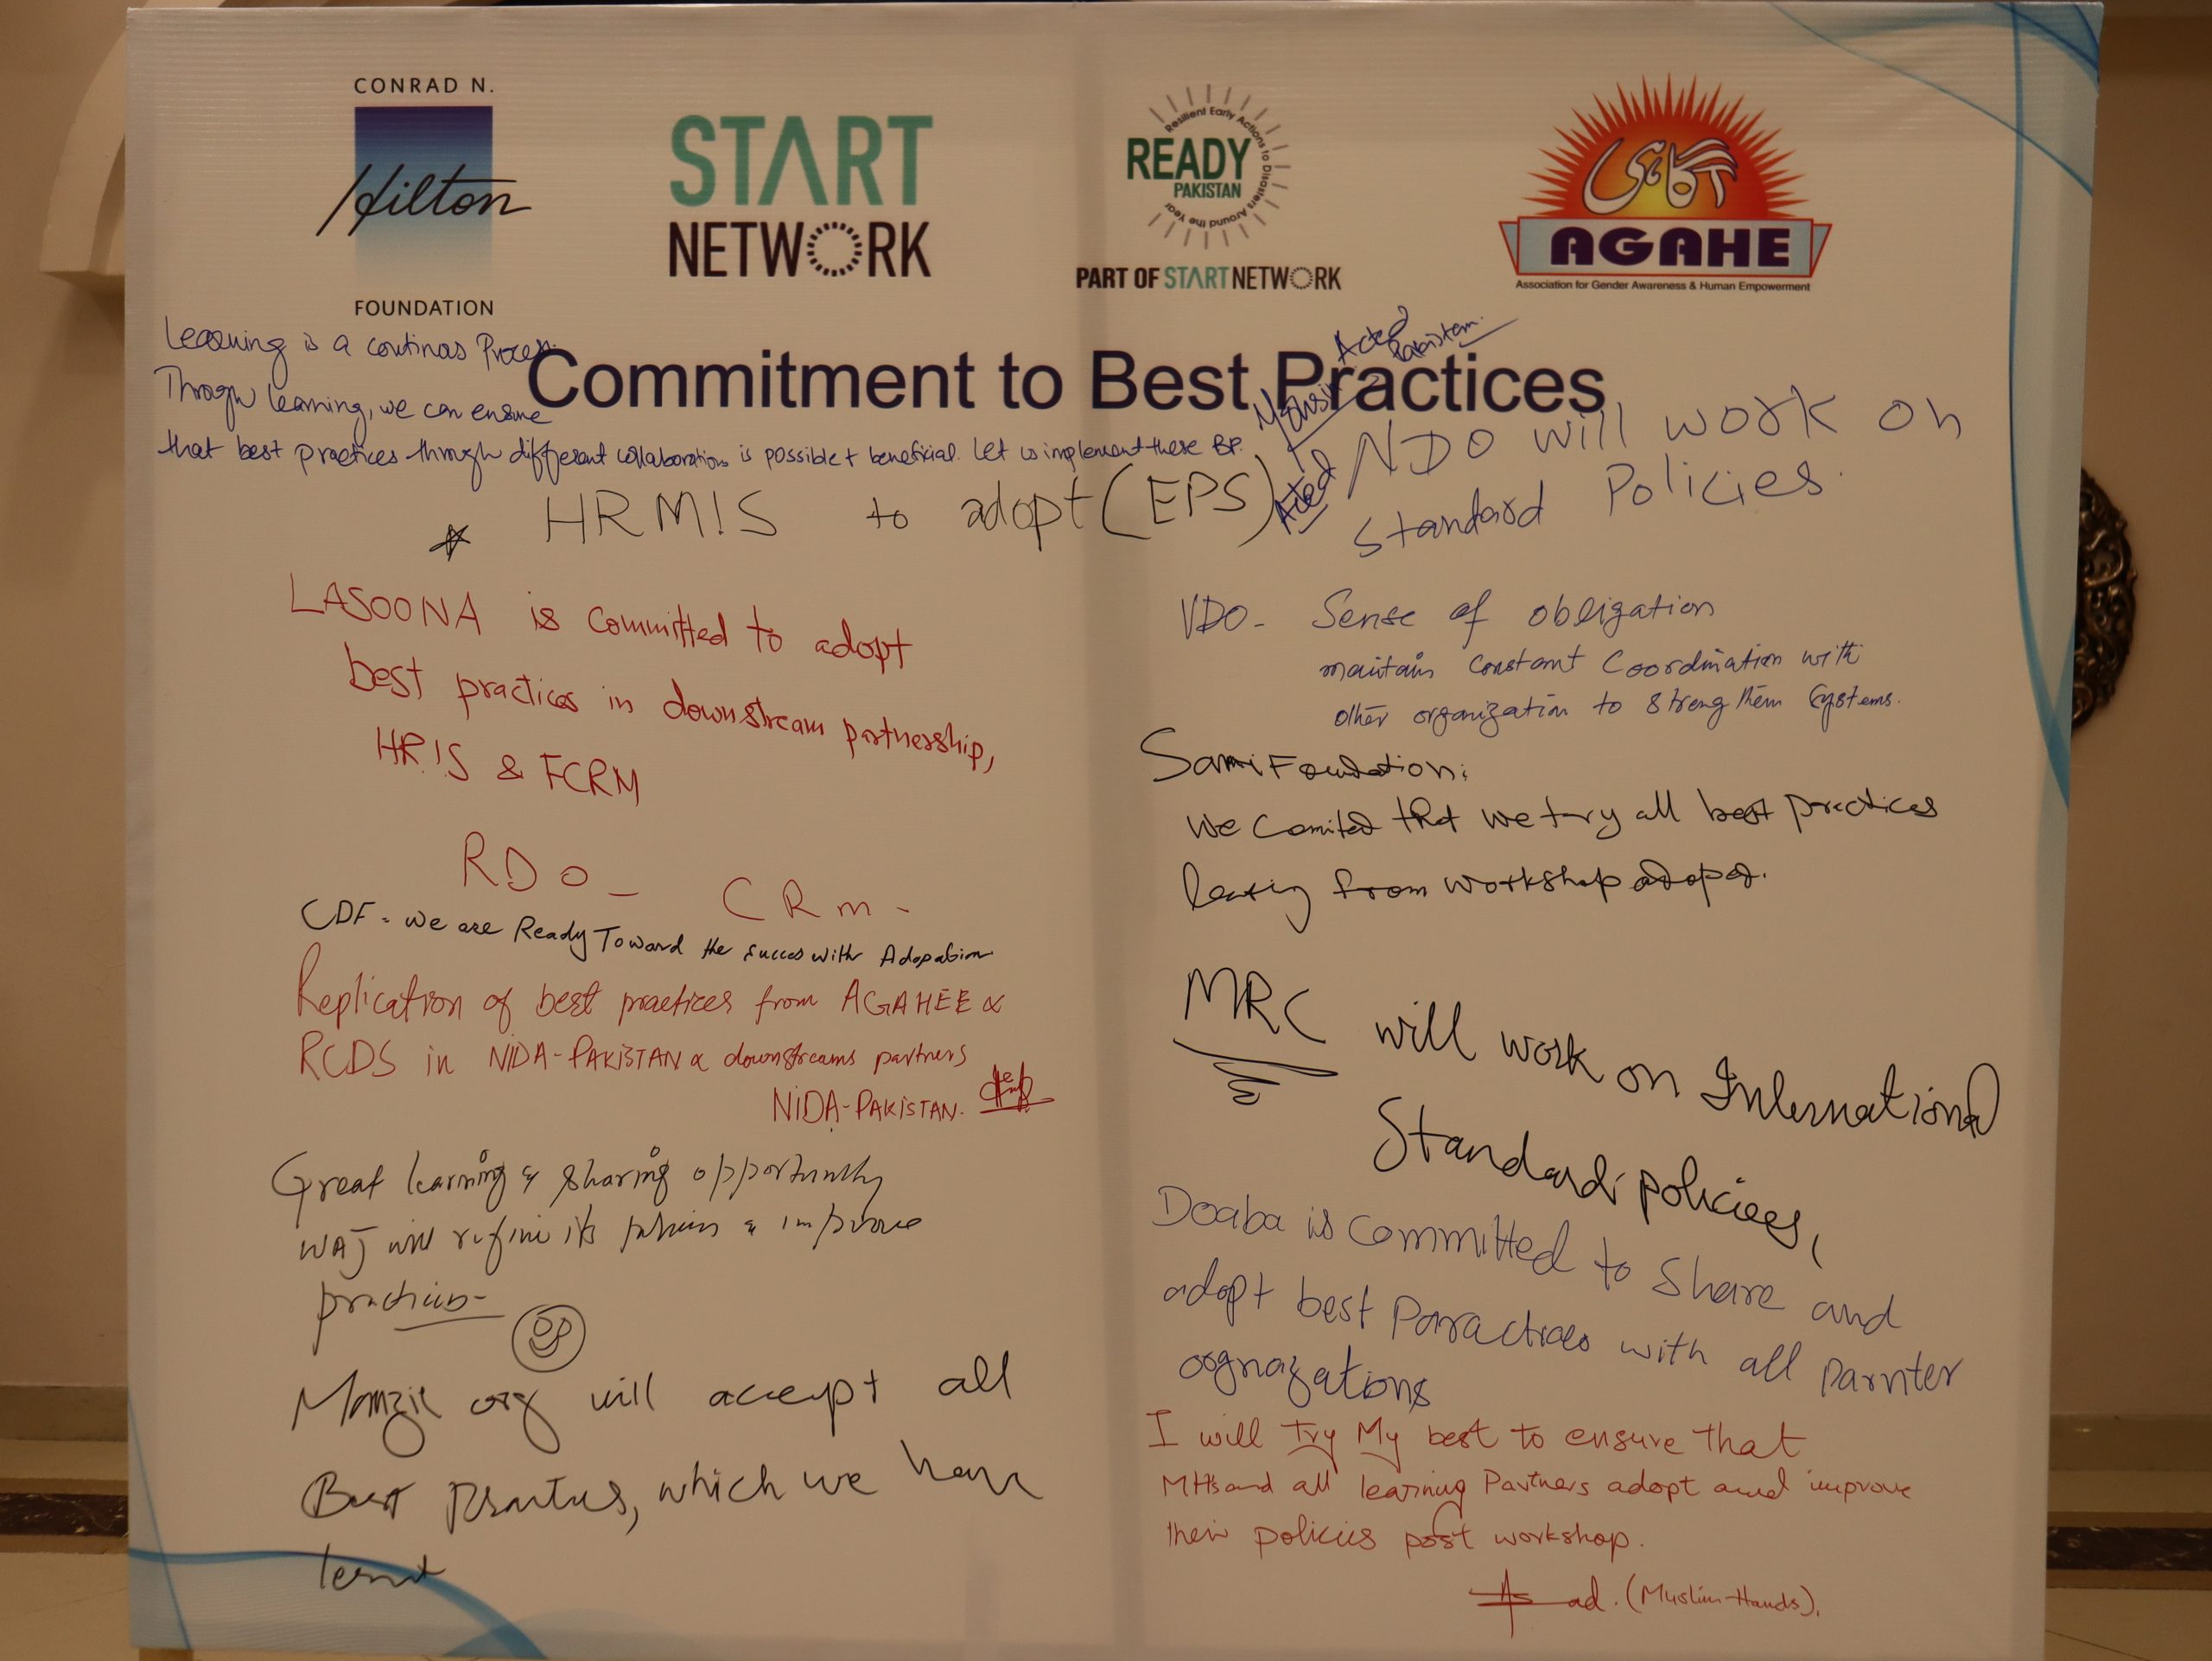 CONRAD N.
Hilton
FOUNDATION
START
NETWORK
Resilient Early Actions to Disasters Around the Year
READY
PAKISTAN
PART OF START NETWORK
آگاہی
AGAHE
Association for Gender Awareness & Human Empowerment
Commitment to Best Practices
Learning is a continas Process.
Throgh learning, we can ensure
that best practices through different collaborations is possible + beneficial. Let us implement these BP.
Acted
Pakistan.
Acted
HRMIS to adopt (EPS)
LASOONA is Committed to adopt
best practices in downstream partnership,
HRIS & FCRM
RDO - CRm -
CDF - we are Ready Toward the Succes with Adopation
Replication of best practices from AGAHEE &
RCDS in NIDA-PAKISTAN & downstreams partners
NIDA-PAKISTAN.
Great learning & sharing opportunity
WAJ will refine its & improve
practices-
Manzil org will accept all
Best Practices, which we have
lernt
NDO will work on
Standard Policies.
VDO - Sense of obligation
maintain Constant Coordination with
other organization to strengthem Systems.
Sami Foundation:
We Comited that we try all best practices
from workshop
MRC will work on International
Standard policies,
Doaba is Committed to Share and
adopt best Paractices with all Parnter
orgnazations
I will Try My best to ensure that
MHs and all learning Partners adopt and improve
their policies post workshop.
Asad. (Muslim-Hands).